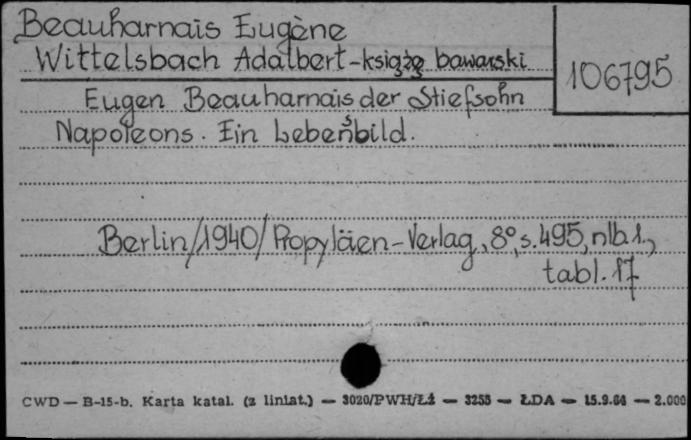 Beauharnais Eugène
Wittelsbach Adalbert-książę bawarski
106795
Eugen Beauharnais der Stiefsohn
Napoleons. Ein Lebensbild.
Berlin/1940/Propyläen-Verlag, 8°, s. 495, nlb. 1,
tabl. 17
CWD — B-15-b. Karta katal. (z liniat.) — 3020/PWH/Łż — 3255 — ŁDA — 15.9.64 — 2.000